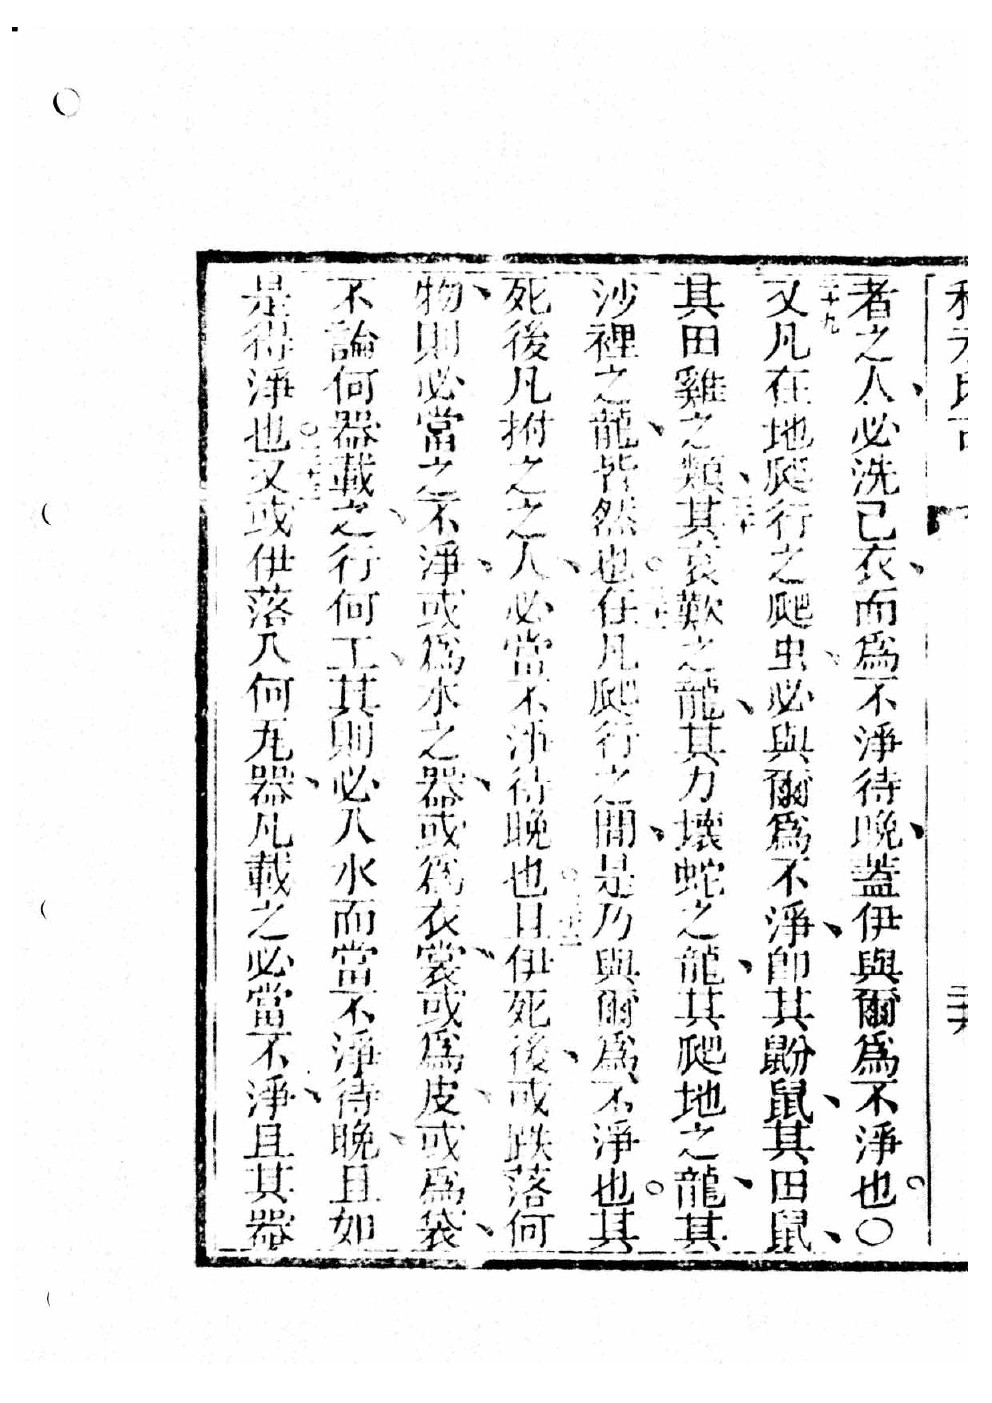 者之人、必洗己衣、而爲不淨待晚、蓋伊與爾爲不淨也。〇
二十九又凡在地爬行之爬虫、必與爾爲不淨、卽其鼢鼠、其田鼠、
其田雞之類、三十其哀歎之龍、其力壞蛇之龍、其爬地之龍、其
沙裡之龍、皆然也。三十一在凡爬行之間、是乃與爾爲不淨也。其
死後凡拊之之人、必當不淨待晚也。三十二且伊死後、或跌落何
物、則必當之不淨、或爲水之器、或爲衣裳、或爲皮、或爲袋、
不論何器載之、行何工、其則必入水而當不淨待晚、且如
是得淨也。三十三又或伊落入何瓦器、凡載之必當不淨、且其器